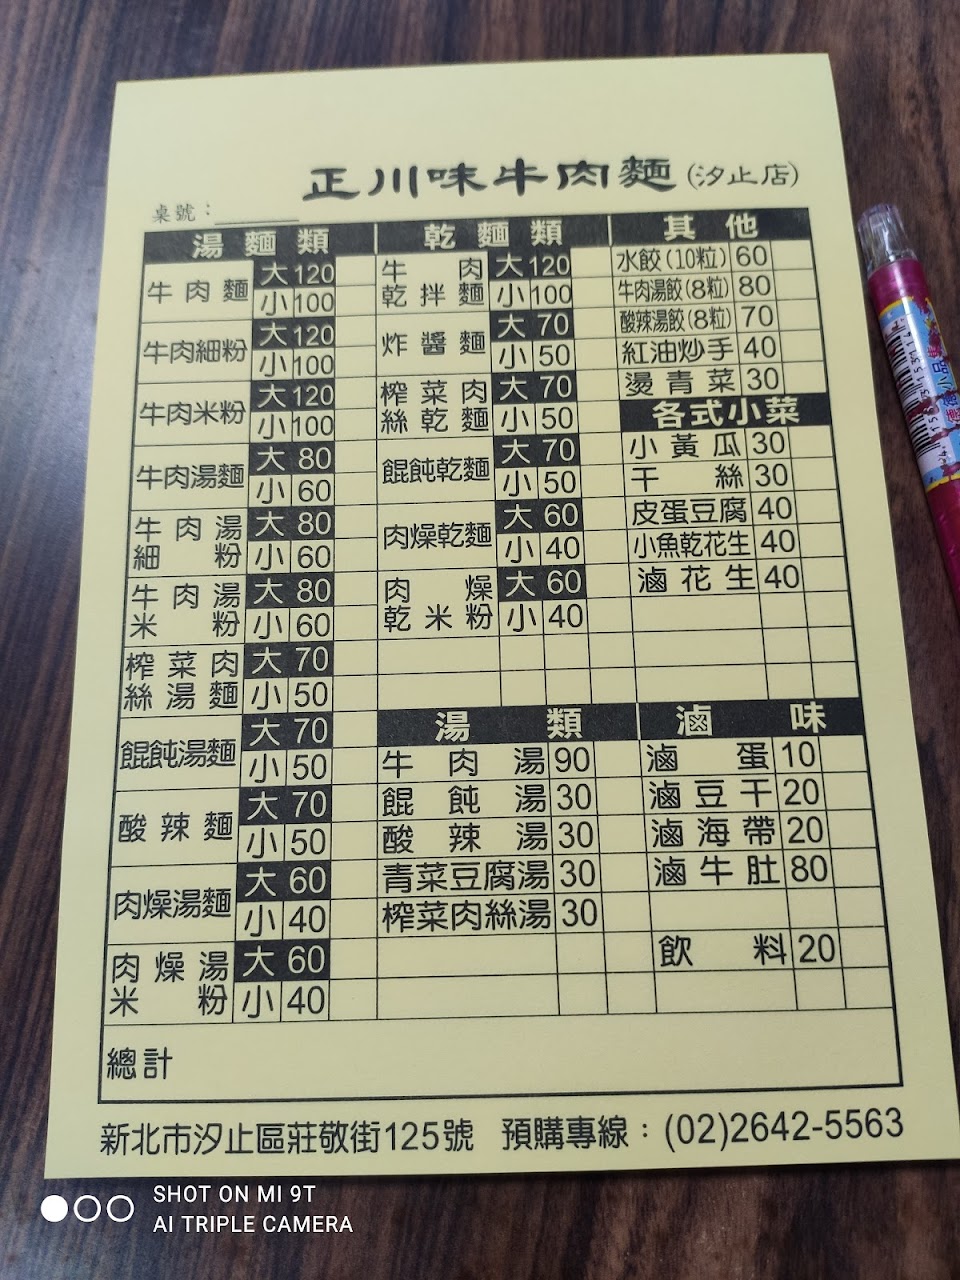 正川味牛肉麵(汐止店)
桌號：
湯麵類
牛肉麵 大 120
小 100
牛肉細粉 大 120
小 100
牛肉米粉 大 120
小 100
牛肉湯麵 大 80
小 60
牛肉湯細粉 大 80
小 60
牛肉湯米粉 大 80
小 60
榨菜肉絲湯麵 大 70
小 50
餛飩湯麵 大 70
小 50
酸辣麵 大 70
小 50
肉燥湯麵 大 60
小 40
肉燥湯米粉 大 60
小 40
乾麵類
牛肉乾拌麵 大 120
小 100
炸醬麵 大 70
小 50
榨菜肉絲乾麵 大 70
小 50
餛飩乾麵 大 70
小 50
肉燥乾麵 大 60
小 40
肉燥乾米粉 大 60
小 40
其他
水餃(10粒) 60
牛肉湯餃(8粒) 80
酸辣湯餃(8粒) 70
紅油炒手 40
燙青菜 30
各式小菜
小黃瓜 30
干絲 30
皮蛋豆腐 40
小魚乾花生 40
滷花生 40
湯類
牛肉湯 90
餛飩湯 30
酸辣湯 30
青菜豆腐湯 30
榨菜肉絲湯 30
滷味
滷蛋 10
滷豆干 20
滷海帶 20
滷牛肚 80
飲料 20
總計
新北市汐止區莊敬街125號 預購專線：(02)2642-5563
SHOT ON MI 9T
AI TRIPLE CAMERA